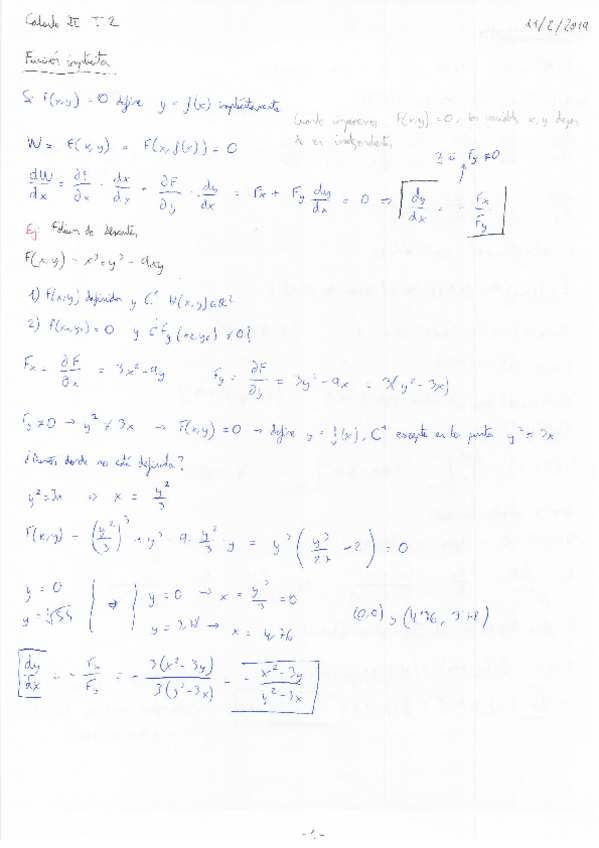 Calculo II T.2 21/2/2019
Función implícita
Si F(x,y) = 0 define y = f(x) implícitamente
Cuando imponemos F(x,y) = 0, las variables x, y dejan
de ser independientes
W = F(x,y) = F(x,f(x)) = 0
si Fy ≠ 0
dW/dx = ∂F/∂x · dx/dx + ∂F/∂y · dy/dx = Fx + Fy dy/dx = 0 ⇒ dy/dx = - Fx/Fy
Ej: Folium de Descartes
F(x,y) = x³+y³ - 9xy
1) F(x,y) definida y C¹ ∀(x,y)∈ℝ²
2) F(x₀,y₀) = 0 y ¿Fy(x₀,y₀) ≠ 0?
Fx = ∂F/∂x = 3x²-9y Fy = ∂F/∂y = 3y²-9x = 3(y²-3x)
Fy≠0 → y² ≠ 3x → F(x,y) = 0 → define y = f(x), C¹ excepto en los puntos y² = 3x
¿Puntos donde no está definida?
y²=3x ⇒ x = y²/3
F(x,y) = (y²/3)³ + y³ - 9 · y²/3 · y = y³ (y³/27 - 2) = 0
y = 0 ⇒ y = 0 → x = y²/3 = 0
y = ∛54 y = 3,78 → x = 4,76
(0,0) y (4,76, 3,78)
dy/dx = - Fx/Fy = - 3(x²-3y)/3(y²-3x) = - x²-3y/y²-3x
-1-